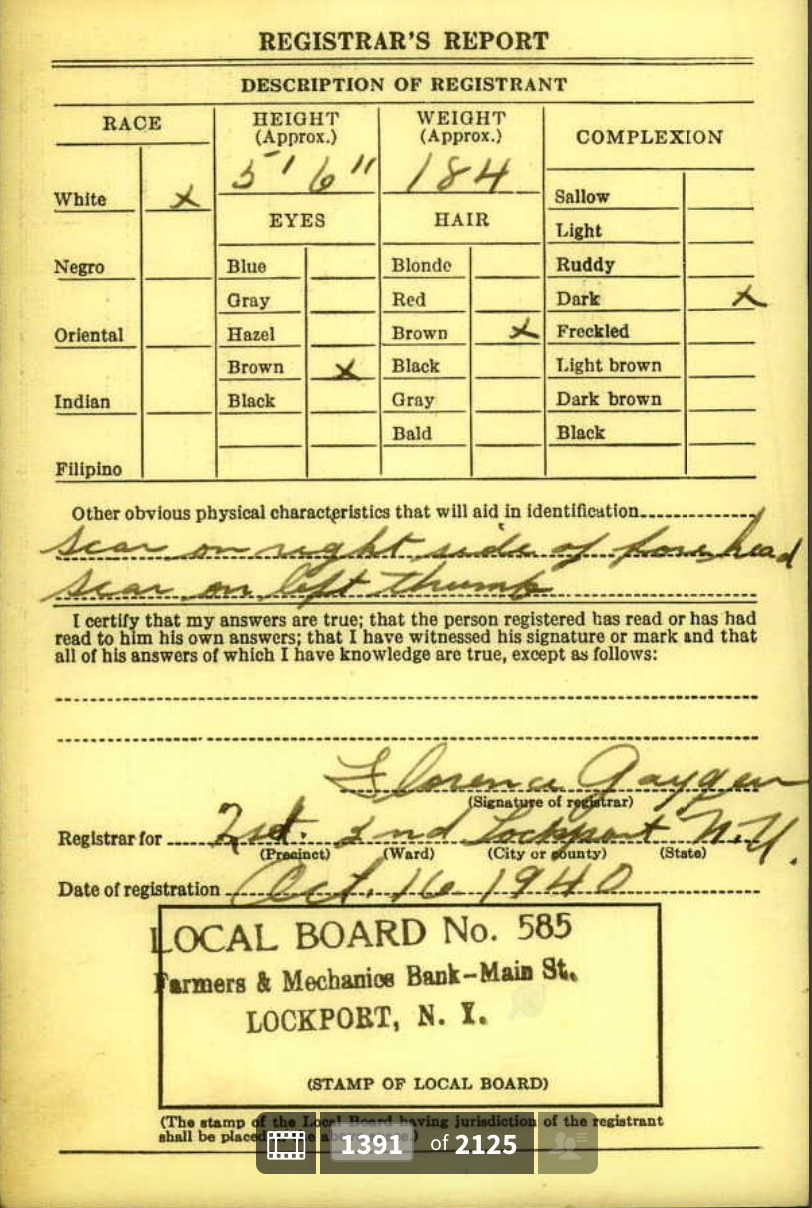 REGISTRAR'S REPORT
DESCRIPTION OF REGISTRANT
RACE
HEIGHT
(Approx.)
WEIGHT
(Approx.)
COMPLEXION
5' 6"
184
White x
Sallow
EYES
HAIR
Light
Negro
Blue
Blonde
Ruddy
Gray
Red
Dark x
Oriental
Hazel
Brown x
Freckled
Brown x
Black
Light brown
Indian
Black
Gray
Dark brown
Bald
Black
Filipino
Other obvious physical characteristics that will aid in identification
scar on right side of forehead
scar on left thumb
I certify that my answers are true; that the person registered has read or has had
read to him his own answers; that I have witnessed his signature or mark and that
all of his answers of which I have knowledge are true, except as follows:
Florence
(Signature of registrar)
Registrar for 2nd Lockport N.Y.
(Precinct) (Ward) (City or county) (State)
Date of registration Oct. 16 1940
LOCAL BOARD No. 585
Farmers & Mechanics Bank-Main St.
LOCKPORT, N. Y.
(STAMP OF LOCAL BOARD)
(The stamp of the Local Board having jurisdiction of the registrant
shall be placed
1391 of 2125